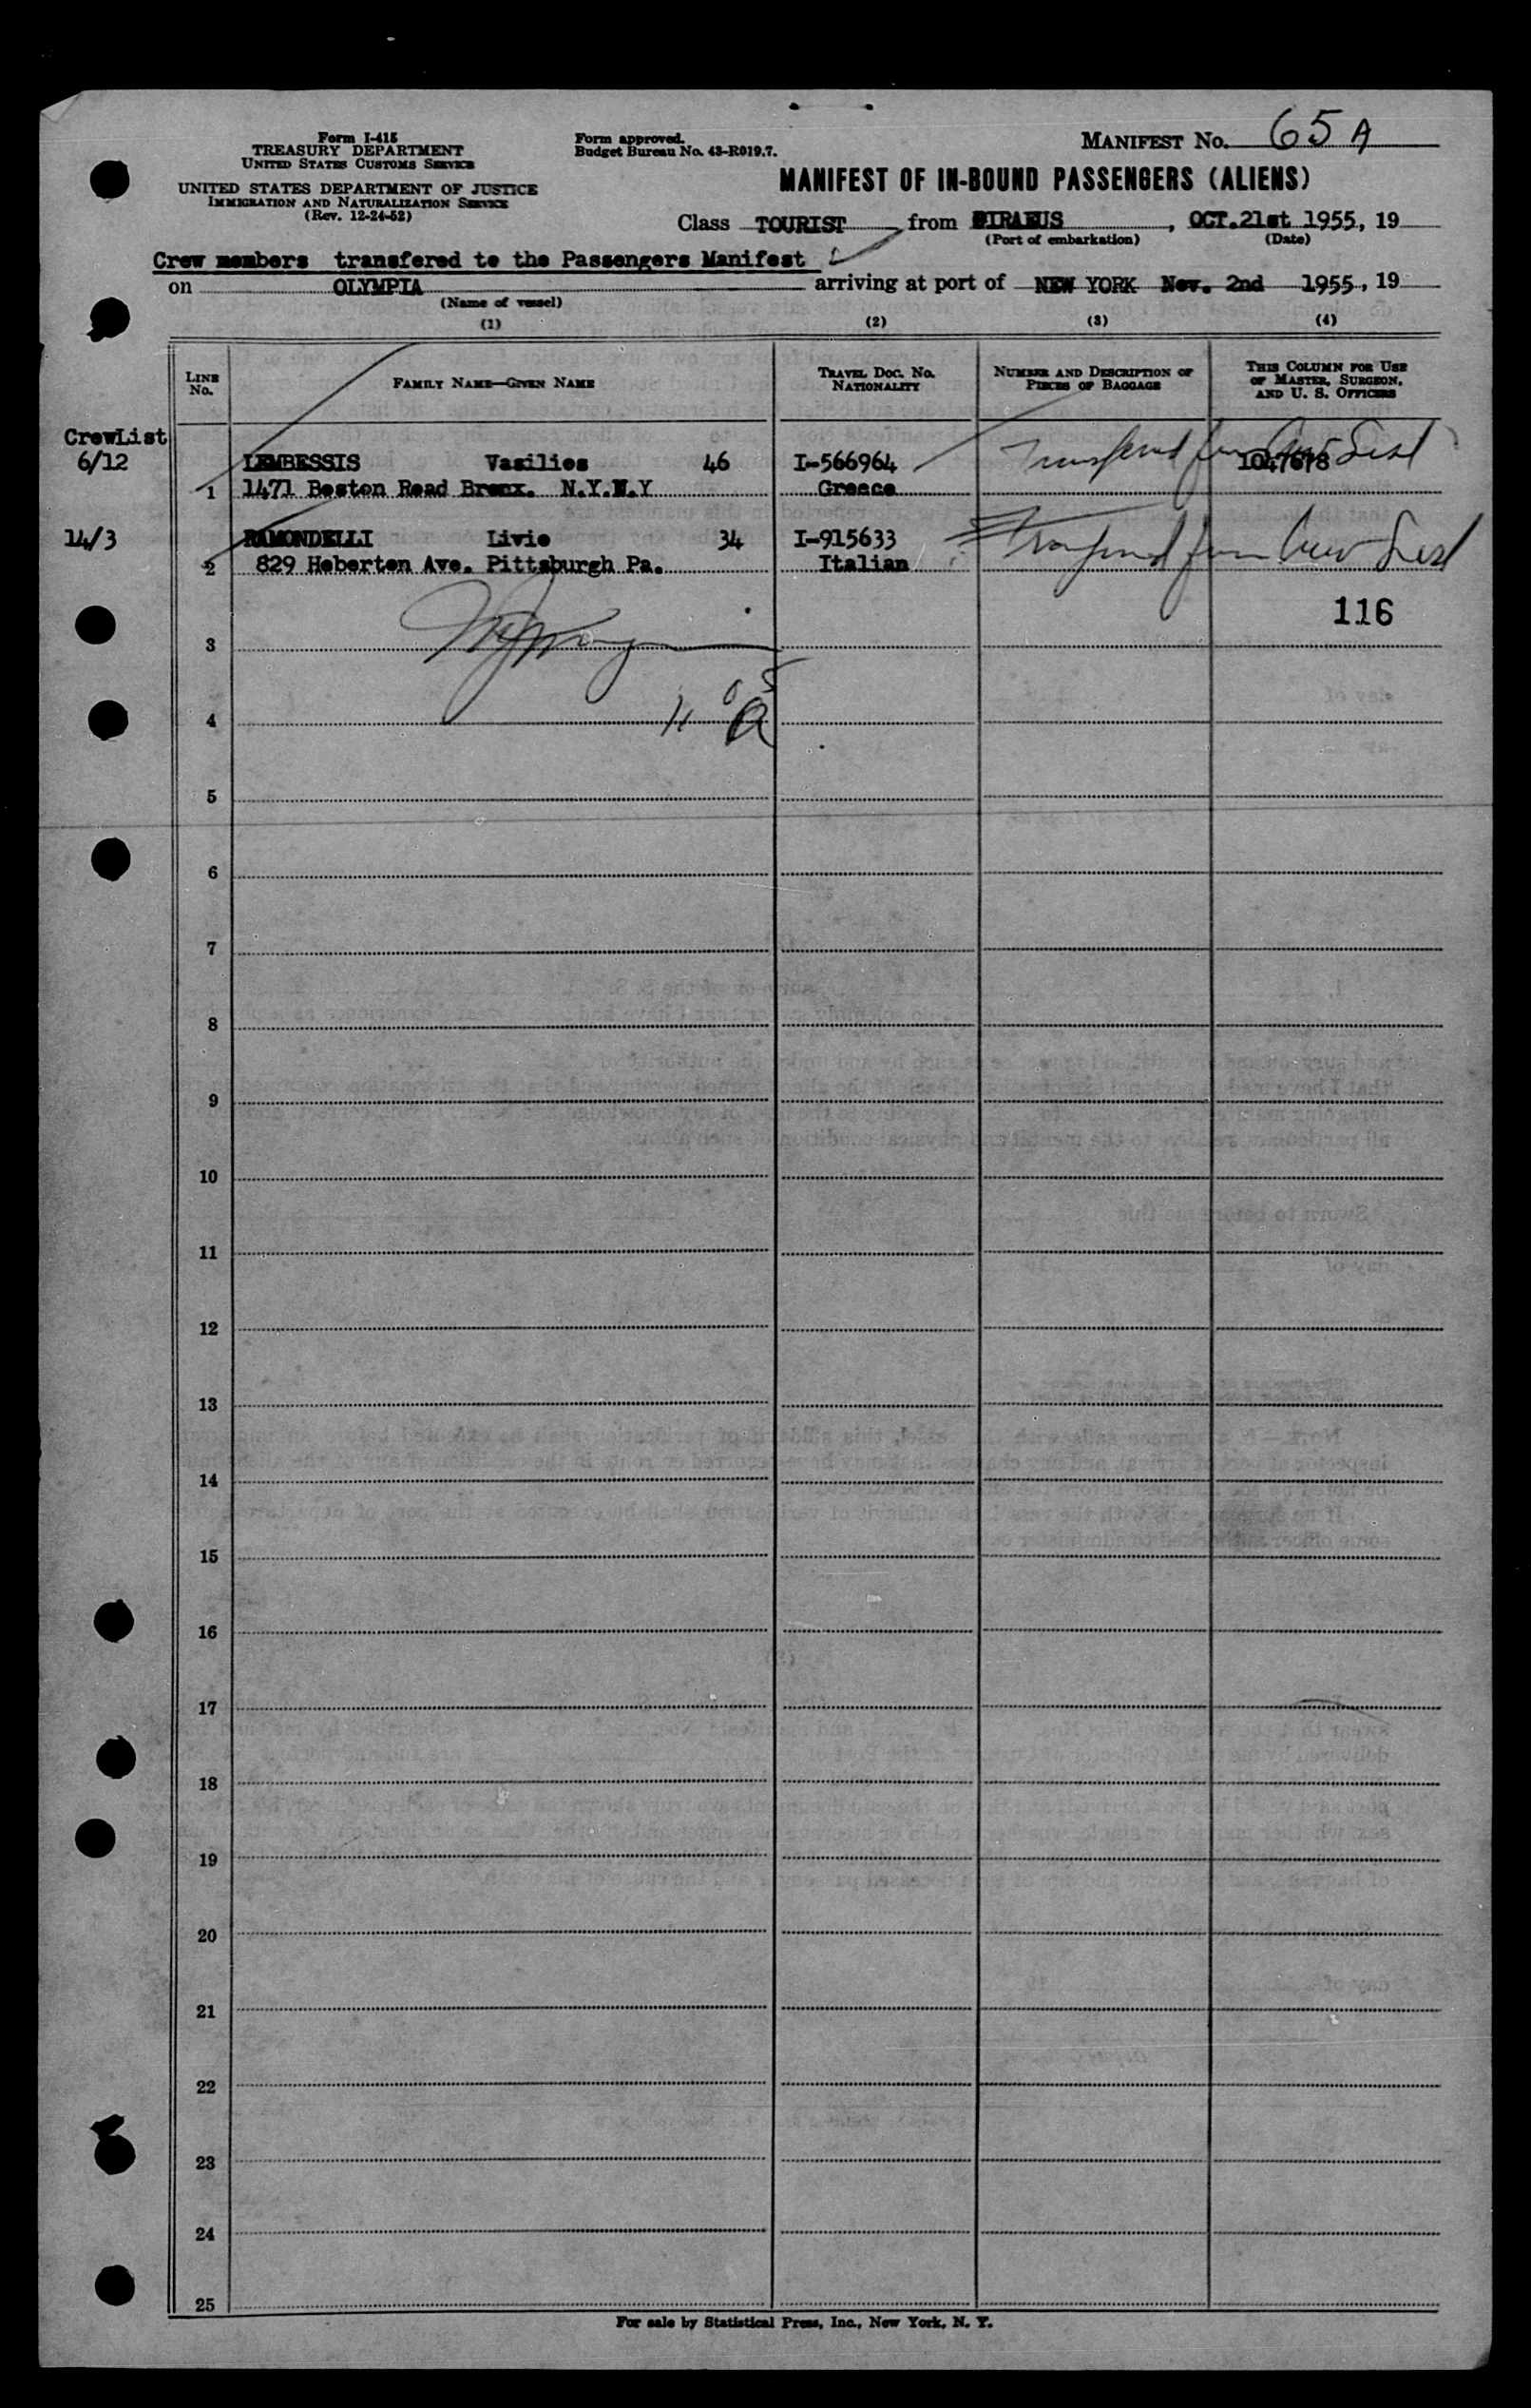 Form I-415
TREASURY DEPARTMENT
UNITED STATES CUSTOMS SERVICE
UNITED STATES DEPARTMENT OF JUSTICE
IMMIGRATION AND NATURALIZATION SERVICE
(Rev. 12-24-52)
Form approved.
Budget Bureau No. 43-R019.7.
MANIFEST NO. 65 A
MANIFEST OF IN-BOUND PASSENGERS (ALIENS)
Class TOURIST from PIRAEUS, OCT.21st 1955, 19
(Port of embarkation) (Date)
Crew members transfered to the Passengers Manifest
on OLYMPIA arriving at port of NEW YORK Nov. 2nd 1955, 19
(Name of vessel)
(1) (2) (3) (4)
LINE NO.
FAMILY NAME—GIVEN NAME
TRAVEL DOC. NO.
NATIONALITY
NUMBER AND DESCRIPTION OF
PIECES OF BAGGAGE
THIS COLUMN FOR USE
OF MASTER, SURGEON,
AND U. S. OFFICERS
CrewList
6/12 LEMBESSIS Vasilios 46 I-566964 Transferred from Crew List 1047678
1 1471 Boston Road Bronx. N.Y.N.Y Greece
14/3 RAMONDELLI Livio 34 I-915633 Transferred from Crew List
2 829 Heberton Ave. Pittsburgh Pa. Italian
116
3
4
5
6
7
8
9
10
11
12
13
14
15
16
17
18
19
20
21
22
23
24
25
For sale by Statistical Press, Inc., New York, N. Y.